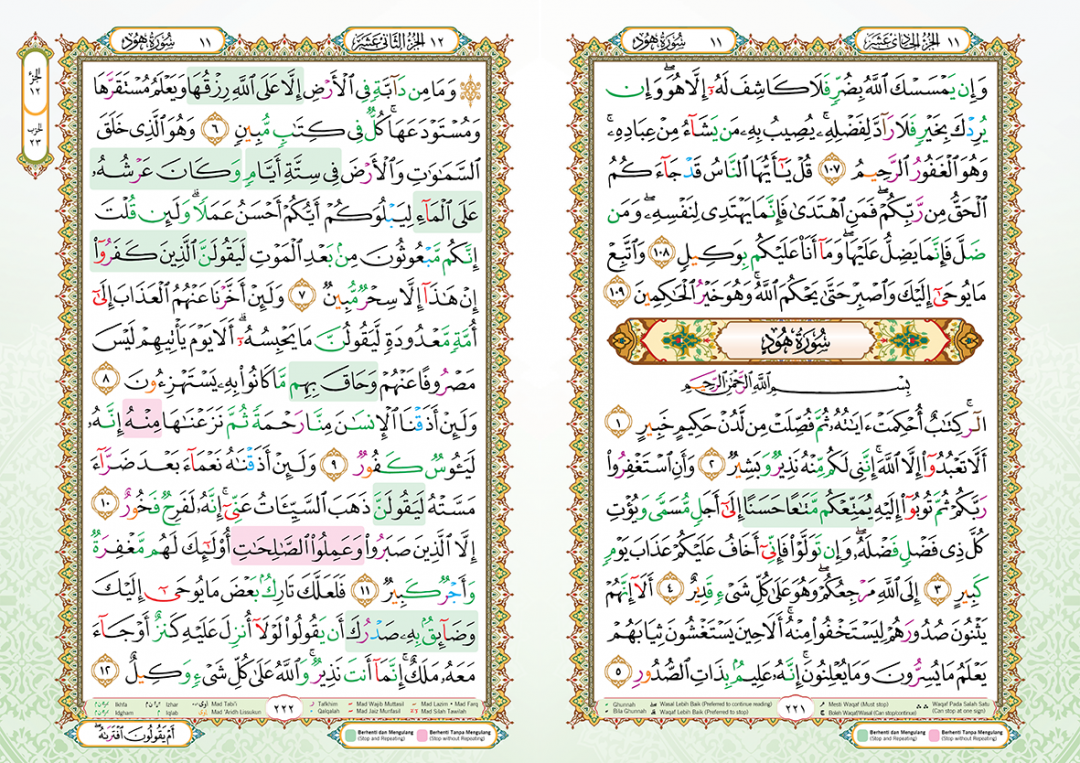 ١١ الجزء الحادي عشر
١١ سورة هود
وَإِن يَمْسَسْكَ اللَّهُ بِضُرٍّ فَلَا كَاشِفَ لَهُۥٓ إِلَّا هُوَ ۖ وَإِن
يُرِدْكَ بِخَيْرٍ فَلَا رَآدَّ لِفَضْلِهِۦ ۚ يُصِيبُ بِهِۦ مَن يَشَآءُ مِنْ عِبَادِهِۦ ۚ
وَهُوَ الْغَفُورُ الرَّحِيمُ ١٠٧ قُلْ يَـٰٓأَيُّهَا النَّاسُ قَدْ جَآءَكُمُ
الْحَقُّ مِن رَّبِّكُمْ ۖ فَمَنِ اهْتَدَىٰ فَإِنَّمَا يَهْتَدِى لِنَفْسِهِۦ ۖ وَمَن
ضَلَّ فَإِنَّمَا يَضِلُّ عَلَيْهَا ۖ وَمَآ أَنَا۠ عَلَيْكُم بِوَكِيلٍ ١٠٨ وَاتَّبِعْ
مَا يُوحَىٰٓ إِلَيْكَ وَاصْبِرْ حَتَّىٰ يَحْكُمَ اللَّهُ ۚ وَهُوَ خَيْرُ الْحَـٰكِمِينَ ١٠٩
سُورَةُ هُودٍ
بِسْمِ اللَّهِ الرَّحْمَـٰنِ الرَّحِيمِ
الٓر ۚ كِتَـٰبٌ أُحْكِمَتْ ءَايَـٰتُهُۥ ثُمَّ فُصِّلَتْ مِن لَّدُنْ حَكِيمٍ خَبِيرٍ ١
أَلَّا تَعْبُدُوٓا۟ إِلَّا اللَّهَ ۚ إِنَّنِى لَكُم مِّنْهُ نَذِيرٌ وَبَشِيرٌ ٢ وَأَنِ اسْتَغْفِرُوا۟
رَبَّكُمْ ثُمَّ تُوبُوٓا۟ إِلَيْهِ يُمَتِّعْكُم مَّتَـٰعًا حَسَنًا إِلَىٰٓ أَجَلٍ مُّسَمًّى وَيُؤْتِ
كُلَّ ذِى فَضْلٍ فَضْلَهُۥ ۖ وَإِن تَوَلَّوْا۟ فَإِنِّىٓ أَخَافُ عَلَيْكُمْ عَذَابَ يَوْمٍ
كَبِيرٍ ٣ إِلَى اللَّهِ مَرْجِعُكُمْ ۖ وَهُوَ عَلَىٰ كُلِّ شَىْءٍ قَدِيرٌ ٤ أَلَآ إِنَّهُمْ
يَثْنُونَ صُدُورَهُمْ لِيَسْتَخْفُوا۟ مِنْهُ ۚ أَلَا حِينَ يَسْتَغْشُونَ ثِيَابَهُمْ
يَعْلَمُ مَا يُسِرُّونَ وَمَا يُعْلِنُونَ ۚ إِنَّهُۥ عَلِيمٌۢ بِذَاتِ الصُّدُورِ ٥
Ghunnah Wasal Lebih Baik (Preferred to continue reading) Mesti Waqaf (Must stop) Waqaf Pada Salah Satu (Can stop at one sign)
Bila Ghunnah Waqaf Lebih Baik (Preferred to stop) Boleh Waqaf/Wasal (Can stop/continue)
٢٢١
Berhenti dan Mengulang (Stop and Repeating) Berhenti Tanpa Mengulang (Stop without Repeating)
١٢ الجزء الثاني عشر
١١ سورة هود
الجزء ١٢
الحزب ٢٣
وَمَا مِن دَآبَّةٍ فِى الْأَرْضِ إِلَّا عَلَى اللَّهِ رِزْقُهَا وَيَعْلَمُ مُسْتَقَرَّهَا
وَمُسْتَوْدَعَهَا ۚ كُلٌّ فِى كِتَـٰبٍ مُّبِينٍ ٦ وَهُوَ الَّذِى خَلَقَ
السَّمَـٰوَٰتِ وَالْأَرْضَ فِى سِتَّةِ أَيَّامٍ وَكَانَ عَرْشُهُۥ
عَلَى الْمَآءِ لِيَبْلُوَكُمْ أَيُّكُمْ أَحْسَنُ عَمَلًا ۗ وَلَئِن قُلْتَ
إِنَّكُم مَّبْعُوثُونَ مِنۢ بَعْدِ الْمَوْتِ لَيَقُولَنَّ الَّذِينَ كَفَرُوٓا۟
إِنْ هَـٰذَآ إِلَّا سِحْرٌ مُّبِينٌ ٧ وَلَئِنْ أَخَّرْنَا عَنْهُمُ الْعَذَابَ إِلَىٰٓ
أُمَّةٍ مَّعْدُودَةٍ لَّيَقُولُنَّ مَا يَحْبِسُهُۥٓ ۗ أَلَا يَوْمَ يَأْتِيهِمْ لَيْسَ
مَصْرُوفًا عَنْهُمْ وَحَاقَ بِهِم مَّا كَانُوا۟ بِهِۦ يَسْتَهْزِءُونَ ٨
وَلَئِنْ أَذَقْنَا الْإِنسَـٰنَ مِنَّا رَحْمَةً ثُمَّ نَزَعْنَـٰهَا مِنْهُ إِنَّهُۥ
لَيَـُٔوسٌ كَفُورٌ ٩ وَلَئِنْ أَذَقْنَـٰهُ نَعْمَآءَ بَعْدَ ضَرَّآءَ
مَسَّتْهُ لَيَقُولَنَّ ذَهَبَ السَّيِّـَٔاتُ عَنِّىٓ ۚ إِنَّهُۥ لَفَرِحٌ فَخُورٌ ١٠
إِلَّا الَّذِينَ صَبَرُوا۟ وَعَمِلُوا۟ الصَّـٰلِحَـٰتِ أُو۟لَـٰٓئِكَ لَهُم مَّغْفِرَةٌ
وَأَجْرٌ كَبِيرٌ ١١ فَلَعَلَّكَ تَارِكٌۢ بَعْضَ مَا يُوحَىٰٓ إِلَيْكَ
وَضَآئِقٌۢ بِهِۦ صَدْرُكَ أَن يَقُولُوا۟ لَوْلَآ أُنزِلَ عَلَيْهِ كَنزٌ أَوْ جَآءَ
مَعَهُۥ مَلَكٌ ۚ إِنَّمَآ أَنتَ نَذِيرٌ ۚ وَاللَّهُ عَلَىٰ كُلِّ شَىْءٍ وَكِيلٌ ١٢
Ikhfa Izhar Mad Tabi'i Tafkhim Mad Wajib Muttasil Mad Lazim Mad Farq
Idgham Iqlab Mad 'Aridh Lissukun Qalqalah Mad Jaiz Munfasil Mad Silah Tawilah
٢٢٢
أَمْ يَقُولُونَ افْتَرَىٰهُ ۖ
Berhenti dan Mengulang (Stop and Repeating) Berhenti Tanpa Mengulang (Stop without Repeating)